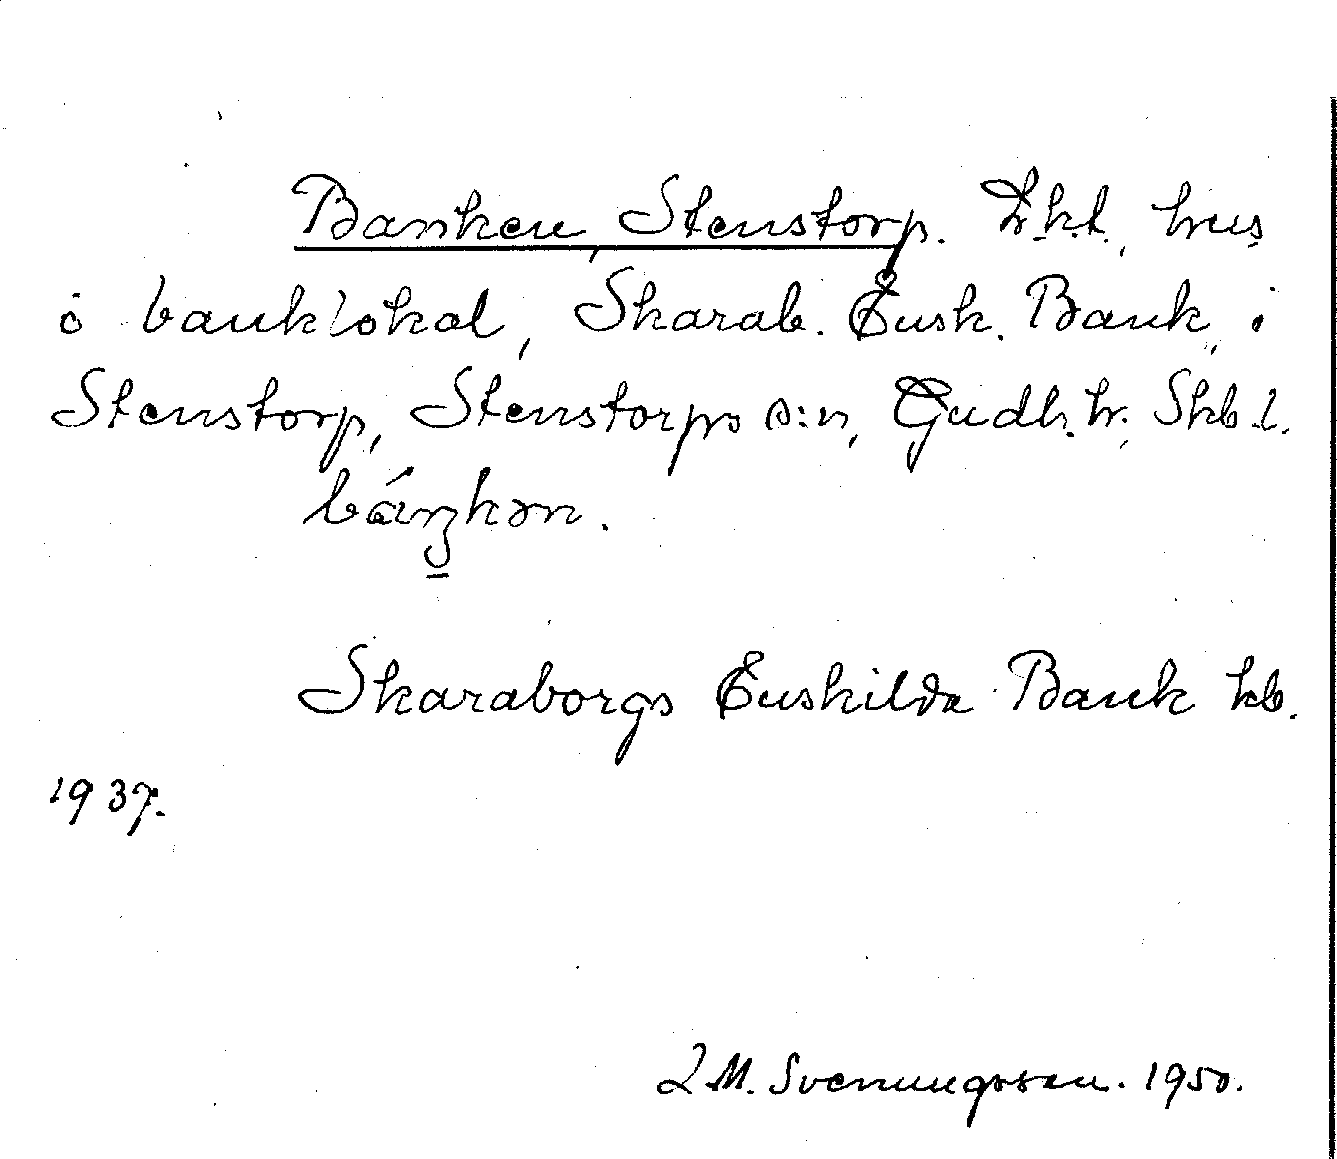 Banken, Stenstorp. Lkt., hus
o banklokal, Skarab. Ensk. Bank, i
Stenstorp, Stenstorps s:n, Gudh. hr. Skb. l.
báŋkən.
Skaraborgs Enskilda Bank kb.
1937.
L M. Svenungsson. 1950.